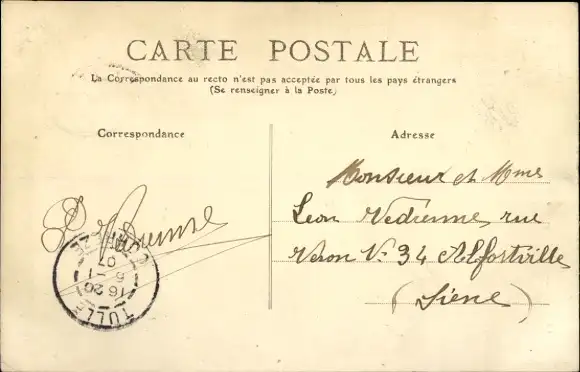 CARTE POSTALE
La Correspondance au recto n'est pas acceptée par tous les pays étrangers
(Se renseigner à la Poste)
Correspondance
Adresse
Monsieur et Mme
Leon Vedrenne rue
Veron N. 34 Alfortville
(Siene)
TULLE
16 20
5 - 1
07
CORREZE